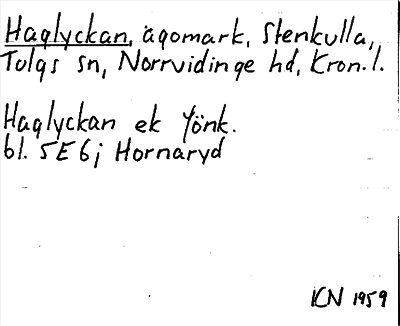 Haglyckan, ägomark, Stenkulla,
Tolgs sn, Norrvidinge hd, Kron.l.
Haglyckan ek Jönk.
bl. 5E6j Hornaryd
KN 1959